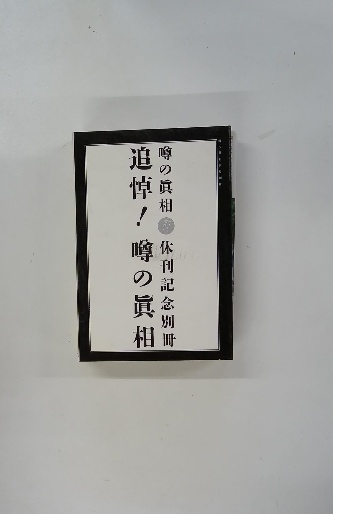 噂の眞相 休刊記念別冊
追悼！噂の眞相